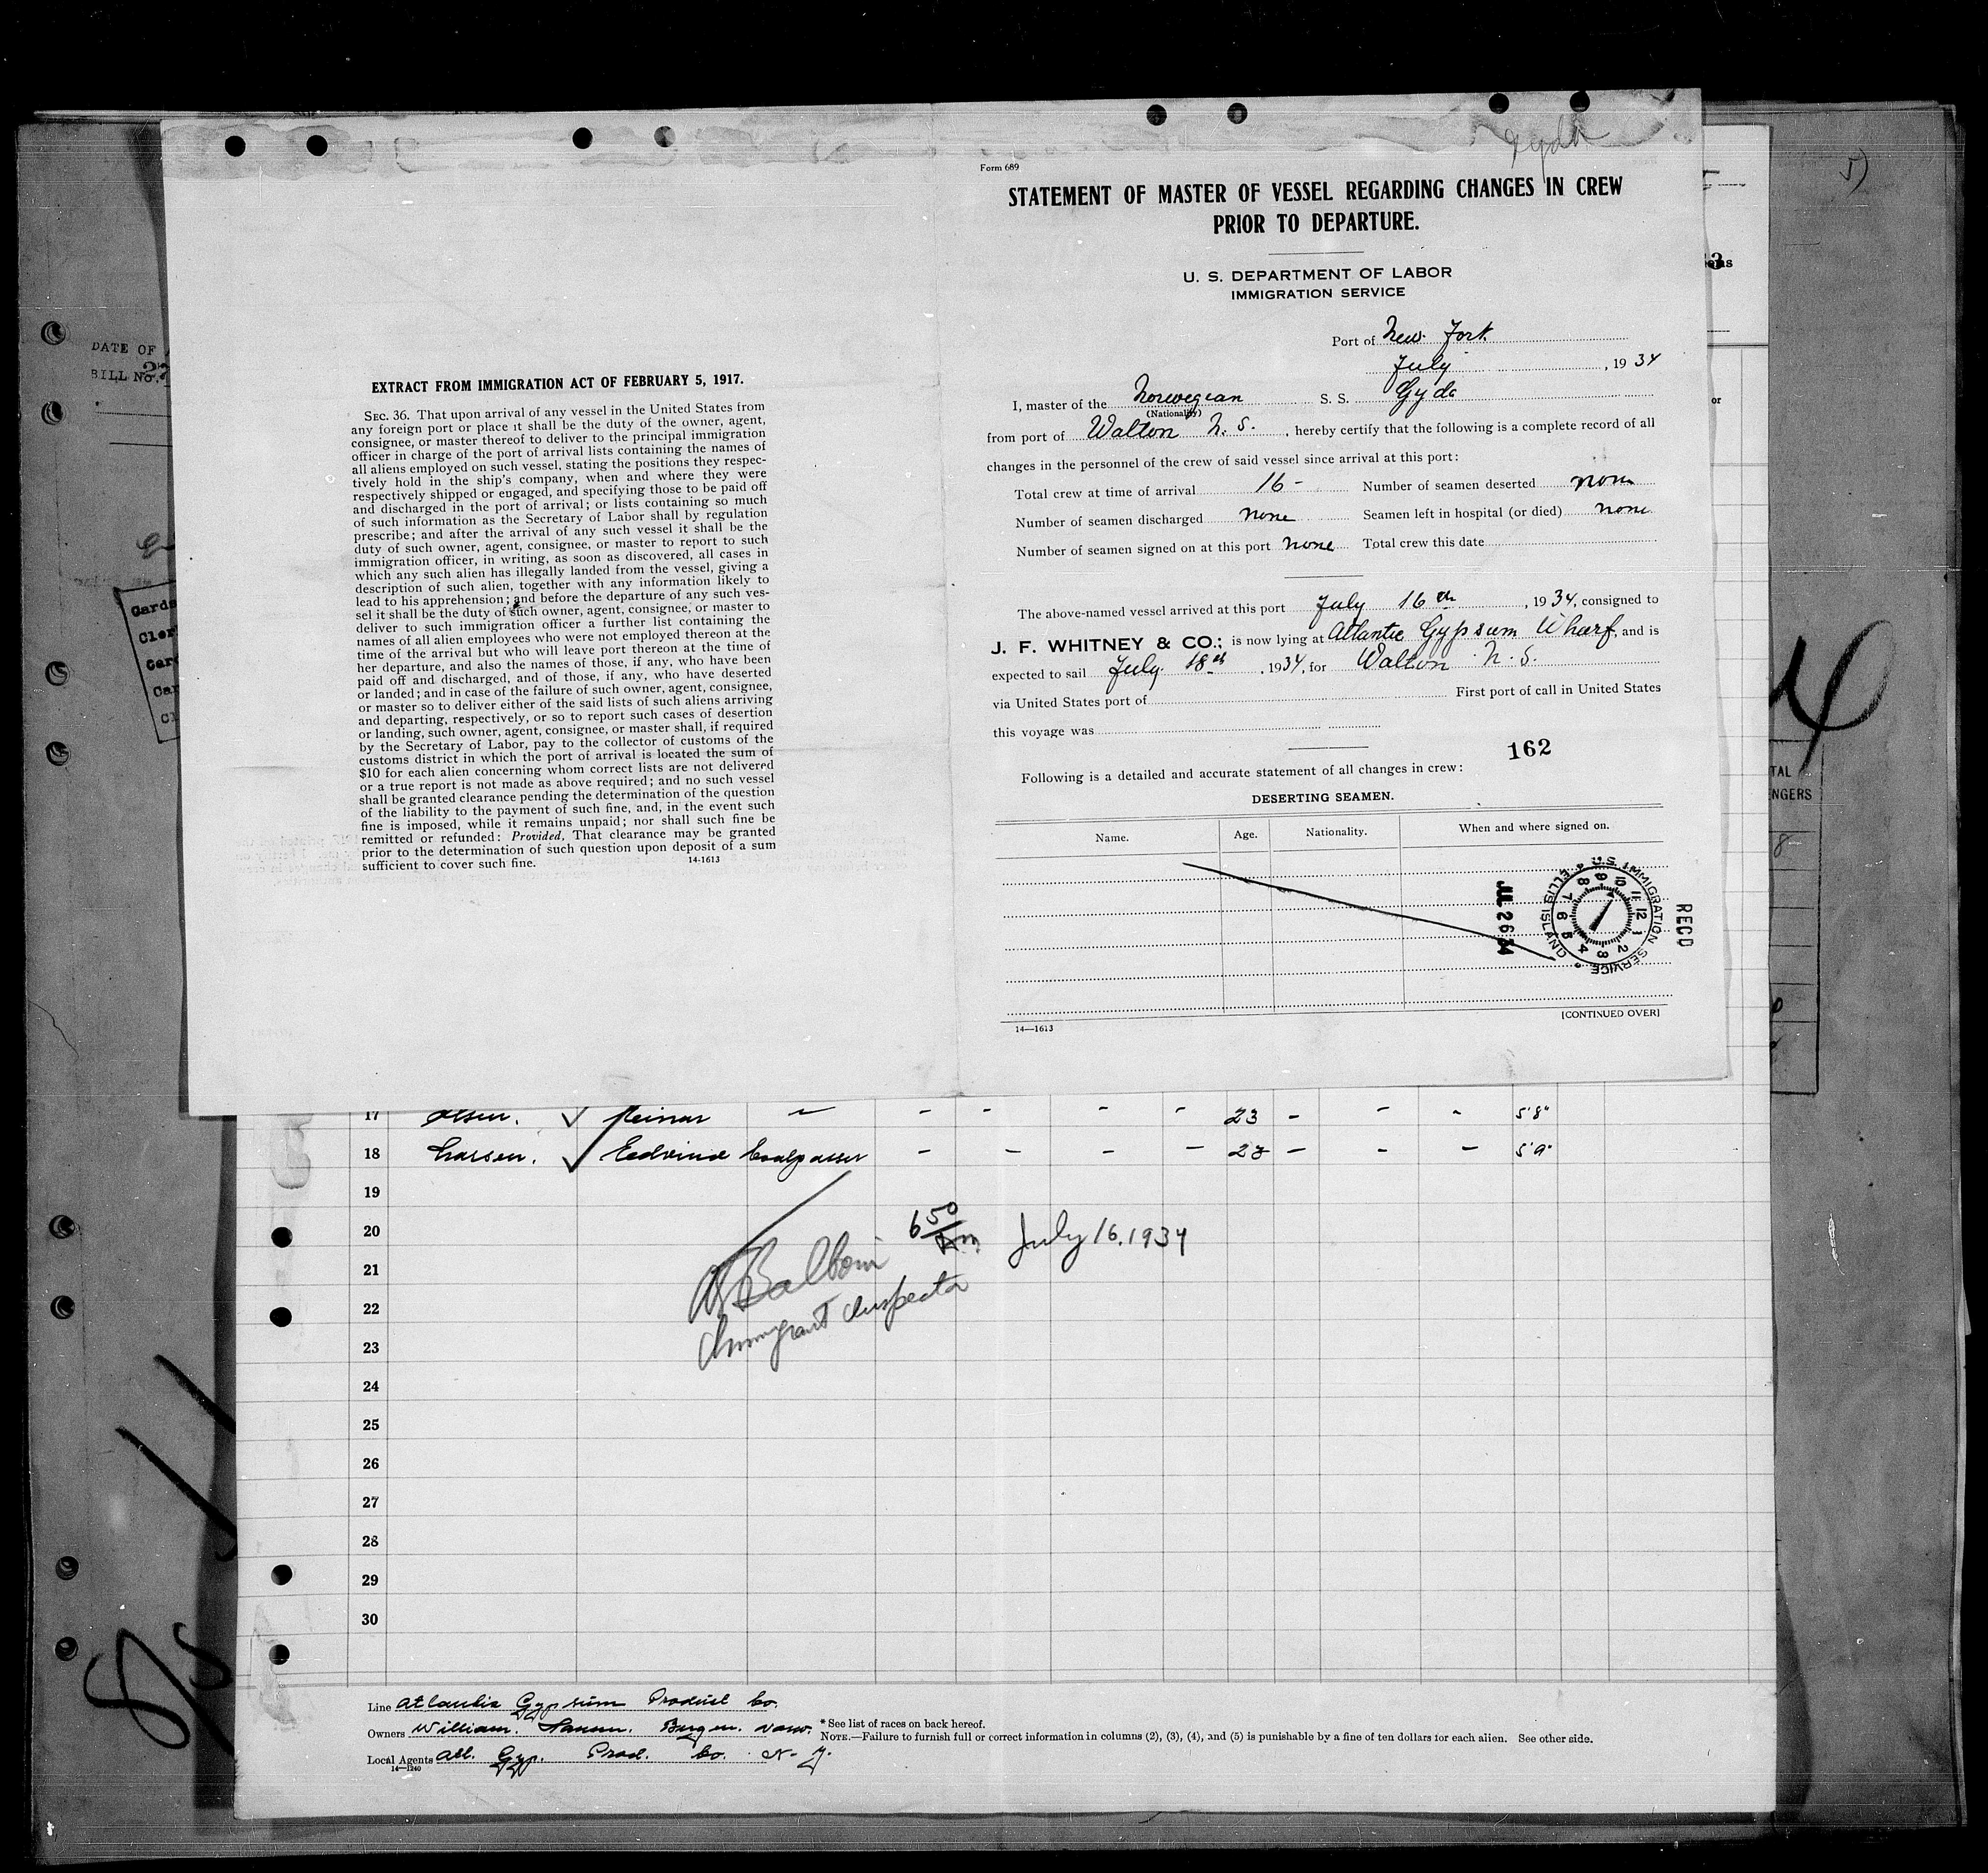 Gyda
Form 689
STATEMENT OF MASTER OF VESSEL REGARDING CHANGES IN CREW
PRIOR TO DEPARTURE.
U. S. DEPARTMENT OF LABOR
IMMIGRATION SERVICE
Port of New York
July , 1934
I, master of the Norwegian S. S. Gyda
(Nationality)
from port of Walton N. S. , hereby certify that the following is a complete record of all
changes in the personnel of the crew of said vessel since arrival at this port:
Total crew at time of arrival 16- Number of seamen deserted none
Number of seamen discharged none Seamen left in hospital (or died) none
Number of seamen signed on at this port none Total crew this date
The above-named vessel arrived at this port July 16th , 1934, consigned to
J. F. WHITNEY & CO.; is now lying at Atlantic Gypsum Wharf, and is
expected to sail July 18th , 1934, for Walton N. S.
via United States port of First port of call in United States
this voyage was
162
Following is a detailed and accurate statement of all changes in crew:
DESERTING SEAMEN.
Name. Age. Nationality. When and where signed on.
U.S. IMMIGRATION SERVICE
ELLIS ISLAND
RECD
JUL 26 34
[CONTINUED OVER]
14—1613
EXTRACT FROM IMMIGRATION ACT OF FEBRUARY 5, 1917.
SEC. 36. That upon arrival of any vessel in the United States from
any foreign port or place it shall be the duty of the owner, agent,
consignee, or master thereof to deliver to the principal immigration
officer in charge of the port of arrival lists containing the names of
all aliens employed on such vessel, stating the positions they respec-
tively hold in the ship's company, when and where they were
respectively shipped or engaged, and specifying those to be paid off
and discharged in the port of arrival; or lists containing so much
of such information as the Secretary of Labor shall by regulation
prescribe; and after the arrival of any such vessel it shall be the
duty of such owner, agent, consignee, or master to report to such
immigration officer, in writing, as soon as discovered, all cases in
which any such alien has illegally landed from the vessel, giving a
description of such alien, together with any information likely to
lead to his apprehension; and before the departure of any such ves-
sel it shall be the duty of such owner, agent, consignee, or master to
deliver to such immigration officer a further list containing the
names of all alien employees who were not employed thereon at the
time of the arrival but who will leave port thereon at the time of
her departure, and also the names of those, if any, who have been
paid off and discharged, and of those, if any, who have deserted
or landed; and in case of the failure of such owner, agent, consignee,
or master so to deliver either of the said lists of such aliens arriving
and departing, respectively, or so to report such cases of desertion
or landing, such owner, agent, consignee, or master shall, if required
by the Secretary of Labor, pay to the collector of customs of the
customs district in which the port of arrival is located the sum of
$10 for each alien concerning whom correct lists are not delivered
or a true report is not made as above required; and no such vessel
shall be granted clearance pending the determination of the question
of the liability to the payment of such fine, and, in the event such
fine is imposed, while it remains unpaid; nor shall such fine be
remitted or refunded: Provided, That clearance may be granted
prior to the determination of such question upon deposit of a sum
sufficient to cover such fine. 14-1613
DATE OF
BILL No. 27
TAL
NGERS
17 Olsen. Reinar 23 5'8"
18 Larsen. Coalpasser 23 5'9"
19
20
21
22
23
24
25
26
27
28
29
30
6 50 July 16, 1934
Immigrant Inspector
Line Atlantic Gypsum Product Co.
Owners William. Hansen. Bergen. Norw.
Local Agents Atl. Gyp. Prod. Co. N. Y.
14—1240
* See list of races on back hereof.
NOTE.—Failure to furnish full or correct information in columns (2), (3), (4), and (5) is punishable by a fine of ten dollars for each alien. See other side.